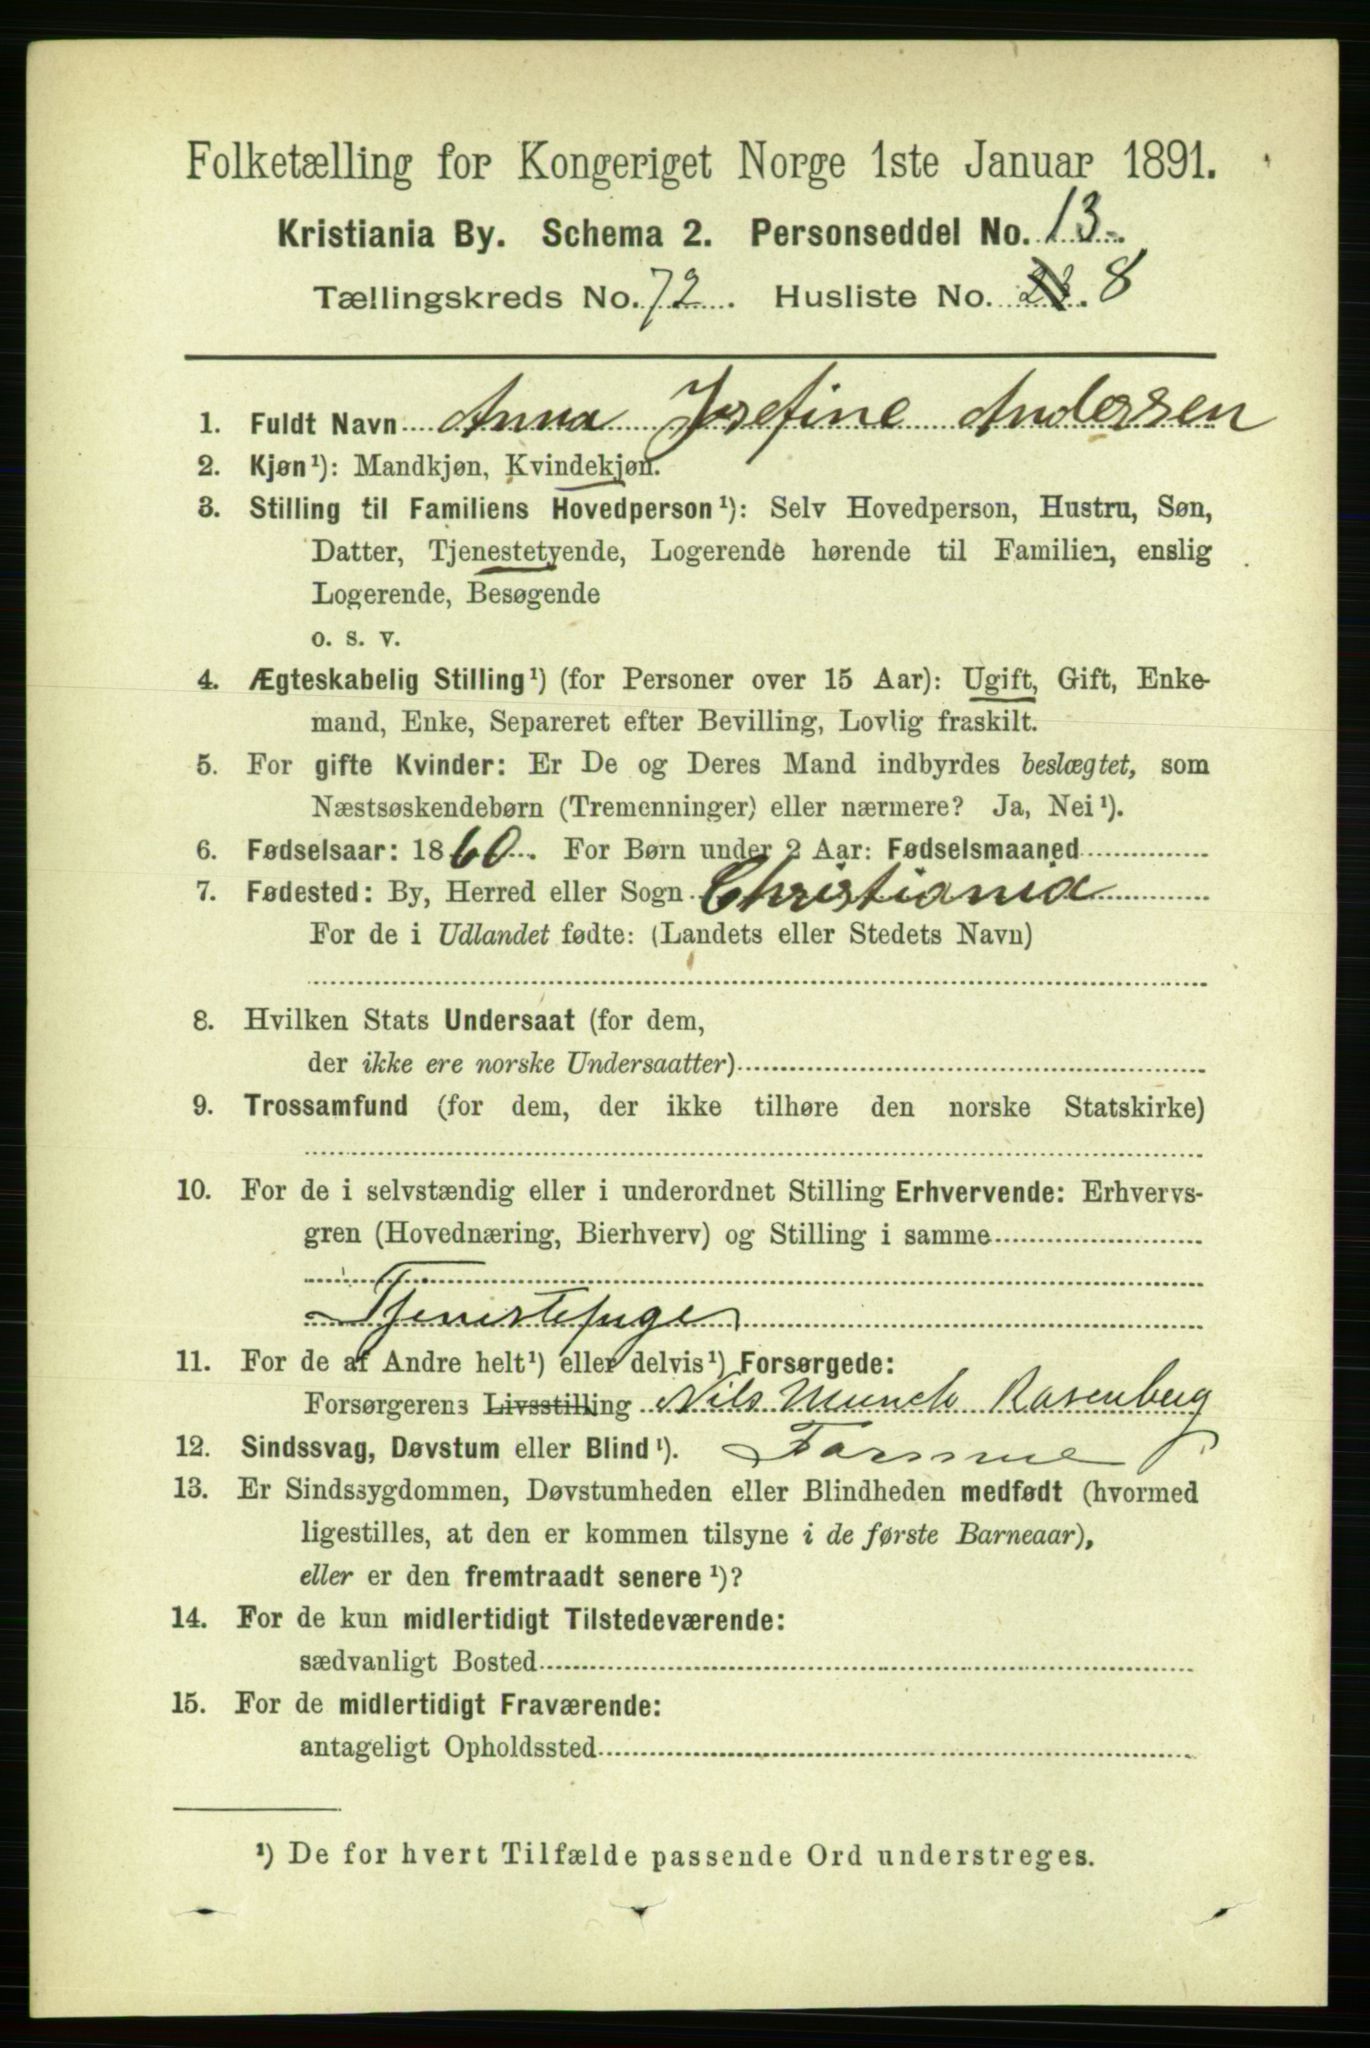 Folketælling for Kongeriget Norge 1ste Januar 1891.
Kristiania By. Schema 2. Personseddel No. 13.
Tællingskreds No. 72. Husliste No. 8
1. Fuldt Navn Anna Josefine Andersen
2. Kjøn¹): Mandkjøn, Kvindekjøn.
3. Stilling til Familiens Hovedperson¹): Selv Hovedperson, Hustru, Søn,
Datter, Tjenestetyende, Logerende hørende til Familien, enslig
Logerende, Besøgende
o. s. v.
4. Ægteskabelig Stilling¹) (for Personer over 15 Aar): Ugift, Gift, Enke-
mand, Enke, Separeret efter Bevilling, Lovlig fraskilt.
5. For gifte Kvinder: Er De og Deres Mand indbyrdes beslægtet, som
Næstsøskendebørn (Tremenninger) eller nærmere? Ja, Nei¹).
6. Fødselsaar: 1860. For Børn under 2 Aar: Fødselsmaaned
7. Fødested: By, Herred eller Sogn Christiania
For de i Udlandet fødte: (Landets eller Stedets Navn)
8. Hvilken Stats Undersaat (for dem,
der ikke ere norske Undersaatter)
9. Trossamfund (for dem, der ikke tilhøre den norske Statskirke)
10. For de i selvstændig eller i underordnet Stilling Erhvervende: Erhvervs-
gren (Hovednæring, Bierhverv) og Stilling i samme
Tjenestepige
11. For de af Andre helt¹) eller delvis¹) Forsørgede:
Forsørgerens Livsstilling Nils Munch Rosenberg
12. Sindssvag, Døvstum eller Blind¹).
13. Er Sindssygdommen, Døvstumheden eller Blindheden medfødt (hvormed
ligestilles, at den er kommen tilsyne i de første Barneaar),
eller er den fremtraadt senere¹)?
14. For de kun midlertidigt Tilstedeværende:
sædvanligt Bosted
15. For de midlertidigt Fraværende:
antageligt Opholdssted
¹) De for hvert Tilfælde passende Ord understreges.